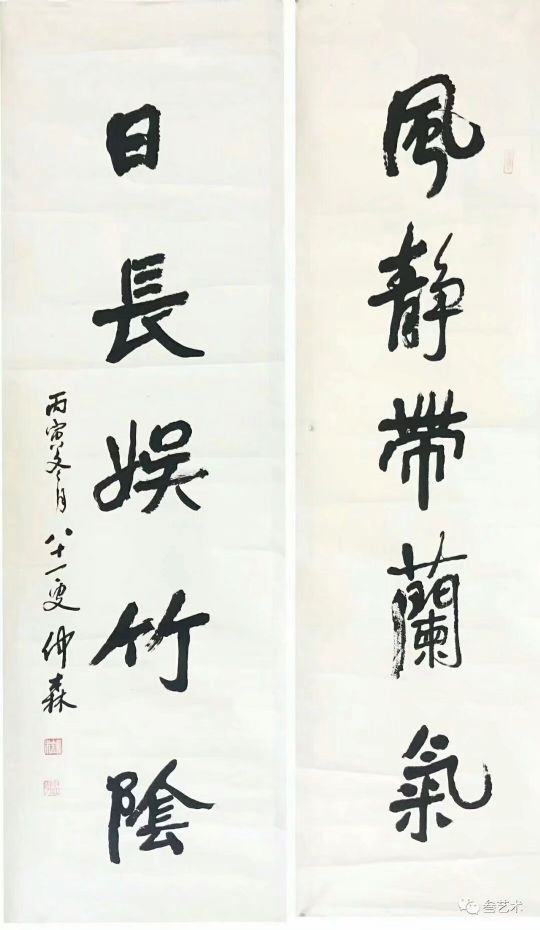 風靜帶蘭氣
日長娛竹陰
丙寅冬月八十一叟仲森
叁艺术